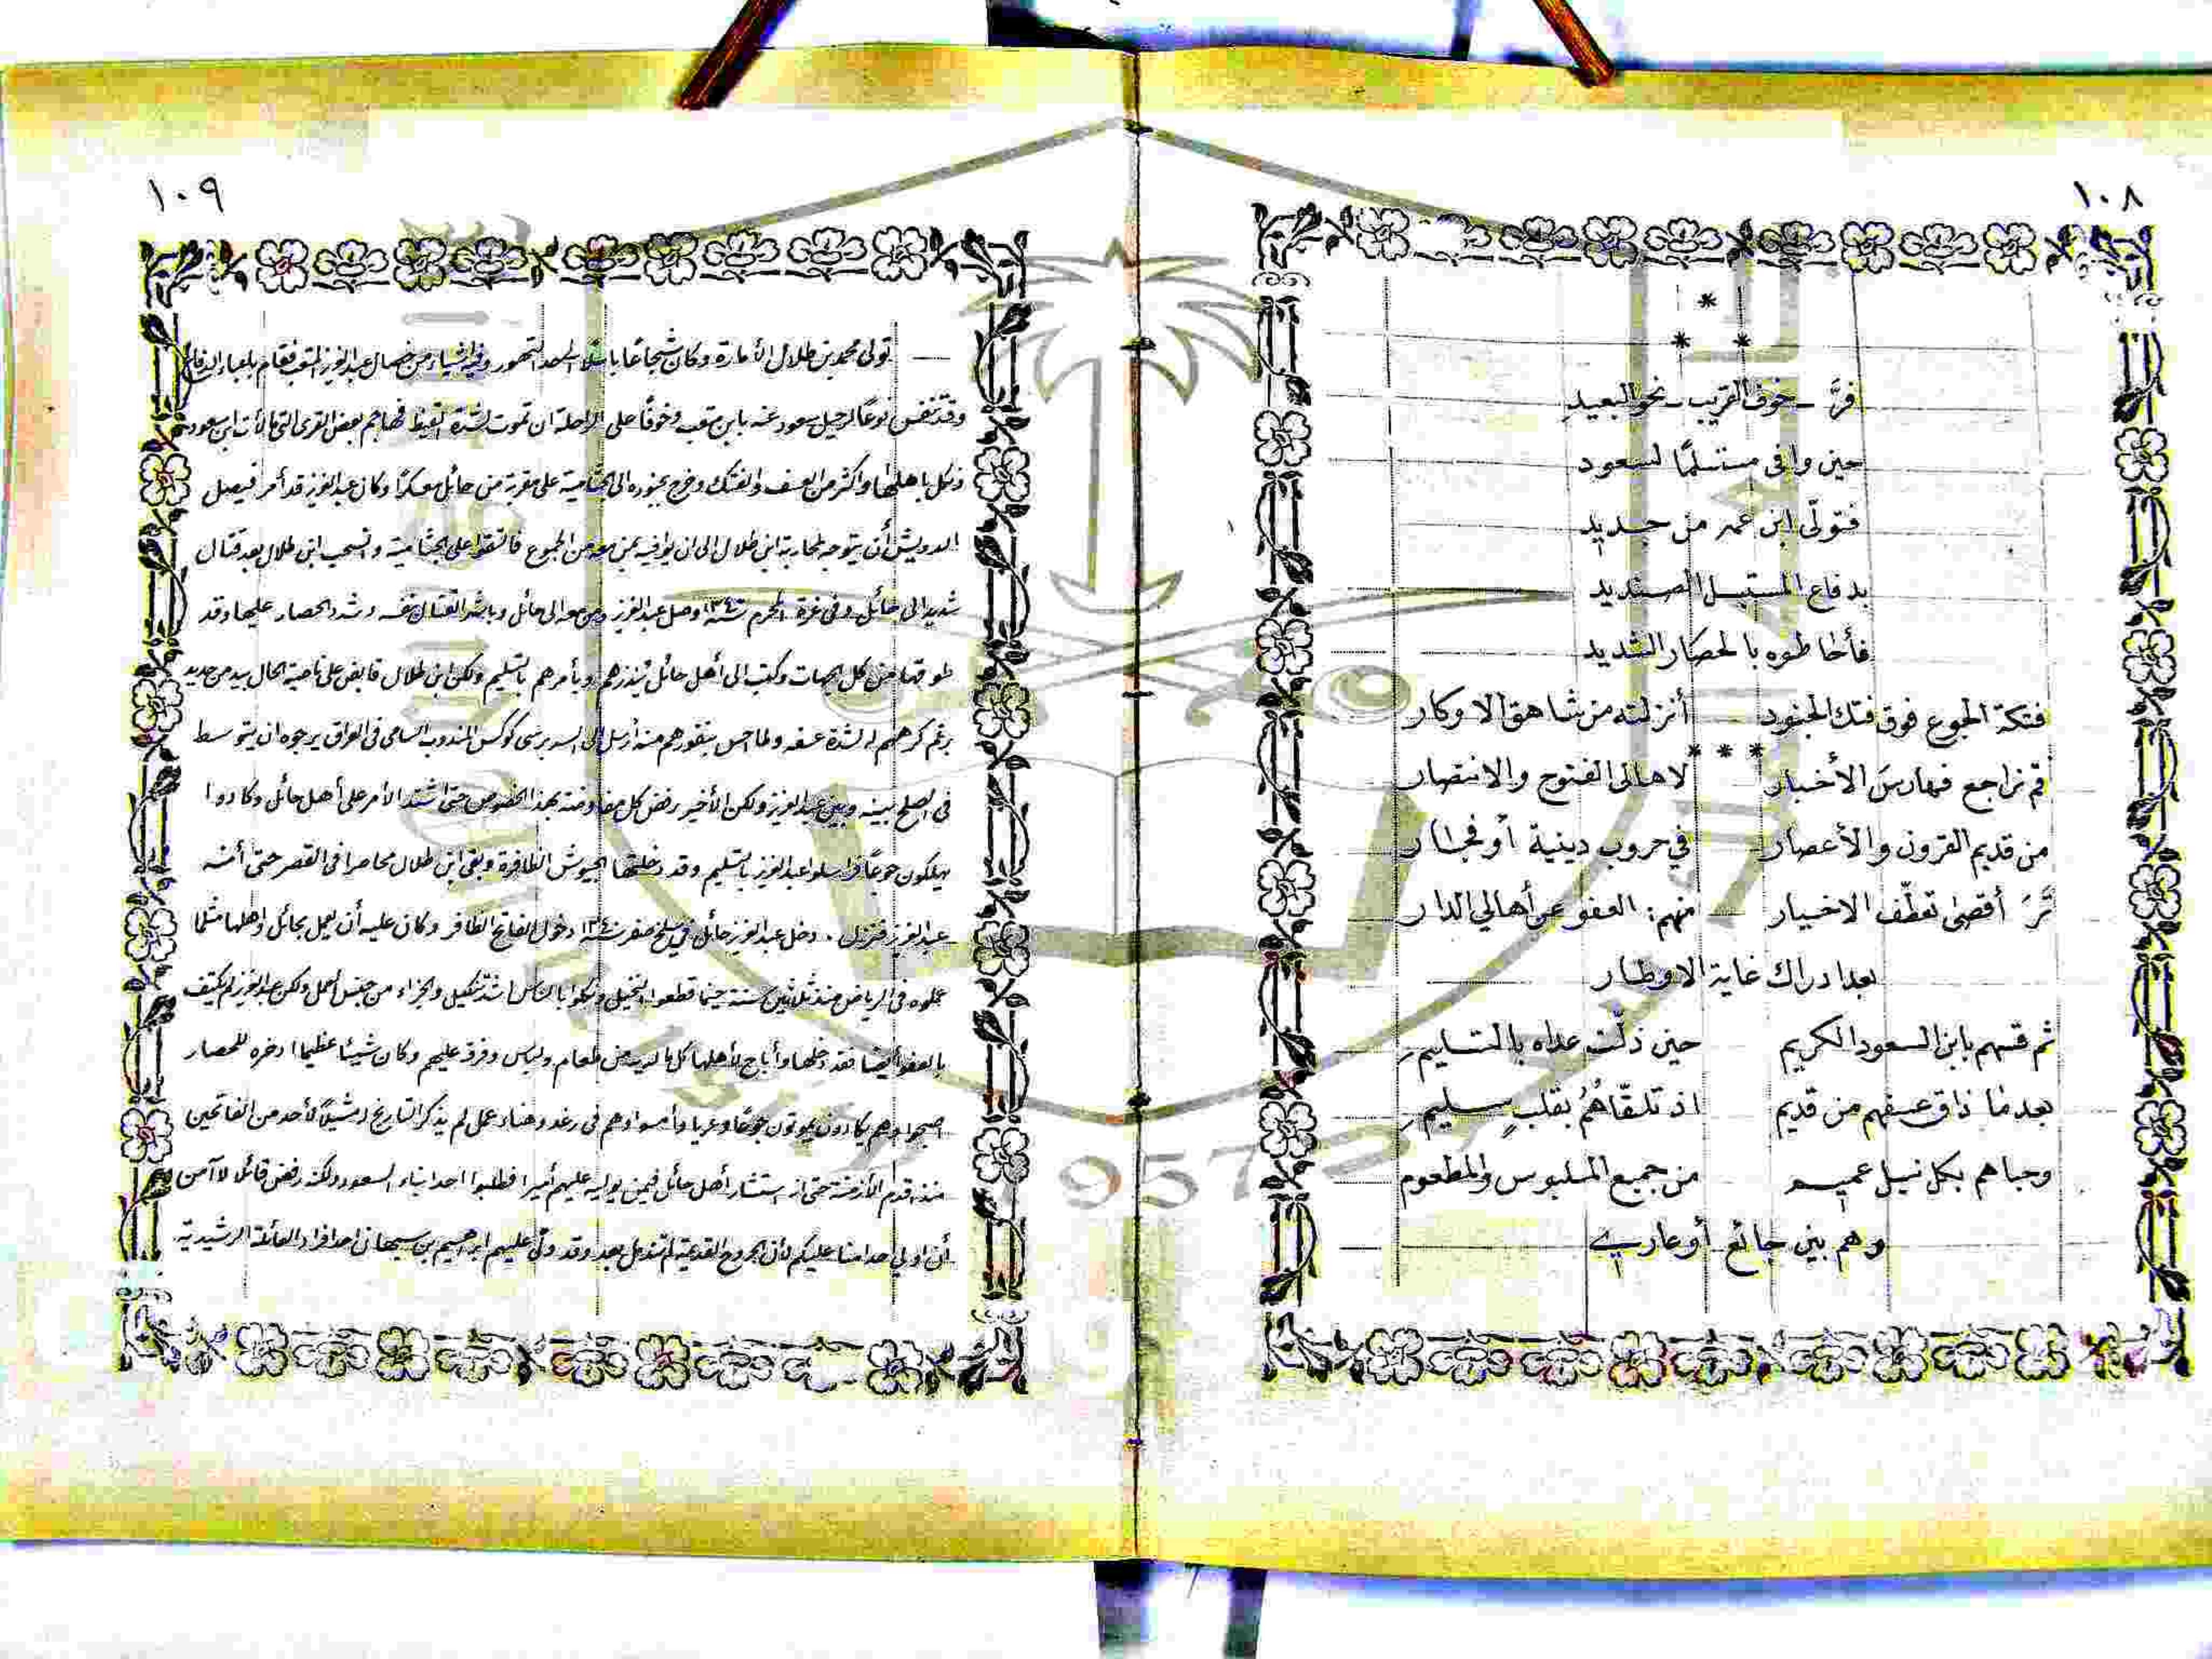 ١٠٨
*
* *
فرَّ - خوف القريب - نحو البعيد
حين وافى مستسلمًا لسعود
فتولّى ابن عمه من جديد
بدفاع المستبسل الصنديد
فأحاطوه بالحصار الشديد
فتكة الجوع فوق فتك الجنود أنزلته من شاهق الاوكار
* * *
قم نراجع فهارسَ الأخبار لاهالى الفتوح والانتصار
من قديم القرون والأعصار في حروب دينية أو فجار
تَرَ أقصى تعطّف الاخيار منهم: العفو عن أهالي الدار
بعد ادراك غاية الاوطار
ثم قسهم بابن السعود الكريم حين ذلّت عداه بالتسليم
بعد ما ذاق عسفهم من قديم اذ تلقّاهُمُ بقلبٍ سليم
وحباهم بكل نيل عميم من جميع الملبوس والمطعوم
وهم بين جائع أو عاري
١٠٩
— تولى محمد بن طلال الأمارة وكان شجاعًا باسلا لحد التهور وفيه اشياء من خصال عبد العزيز المتعب فقام باعباء الدفاع
وقد تنفس نوعًا لرحيل سعود عنه بابن متعب وخوفًا على الراحلة ان تموت لشدة القيظ فهاجم بعض القرى التي مالأت ابن سعود
ونكل باهلها واكثر من العسف والفتك وخرج بجنوده الى الجثامية على مقربة من حائل معسكرًا وكان عبد العزيز قد أمر فيصل
الدويش أن يتوجه لمحاربة ابن طلال الى ان يوافيه بمن معه من الجموع فالتقوا على الجثامية وانسحب ابن طلال بعد قتال
شديد الى حائل وفى غرة المحرم سنة ١٣٤٠ وصل عبد العزيز ومن معه الى حائل وباشر القتال بنفسه وشدد الحصار عليها وقد
طوقها من كل الجهات وكتب الى أهل حائل ينذرهم ويأمرهم بالتسليم ولكن ابن طلال قابض على ناصية الحال بيد من حديد
برغم كرههم له لشدة عسفه ولما احس بنفورهم منه أرسل الى السير برسى كوكس المندوب السامى فى العراق يرجوه ان يتوسط
فى الصلح بينه وبين عبد العزيز ولكن الأخير رفض كل مفاوضة بهذا الخصوص حتى اشتد الأمر على أهل حائل وكادوا
يهلكون جوعًا فراسلوا عبد العزيز بالتسليم وقد دخلتها الجيوش الظافرة وبقى ابن طلال محاصرا فى القصر حتى أمنه
عبد العزيز فنزل . دخل عبد العزيز حائل في سلخ صفر سنة ١٣٤٠ دخول الفاتح الظافر وكان عليه أن يعمل بحائل واهلها مثلما
عملوه فى الرياض منذ ثلاثين سنة حينما قطعوا النخيل ونكلوا بالناس اشد تنكيل والجزاء من جنس العمل ولكن عبد العزيز لم يكتف
بالعفو أيضا فقد دخلها وأباح لأهلها كل ما لديه من طعام ولباس وفرقه عليهم وكان شيئا عظيما ادخره للحصار
اصبحوا وهم يكادون يموتون جوعًا وعريا وأمسوا وهم فى رغد وهناء عمل لم يذكر التاريخ له مثيلاً لأحد من الفاتحين
منذ اقدم الأزمنة حتى انه استشار أهل حائل فيمن يوليه عليهم أميرا فطلبوا احد ابناء السعود ولكنه رفض قائلا لا آمن
أن اولي احدا منا عليكم لأن الجروح القديمة لم تندمل بعد وقد ولّى عليهم ابراهيم بن سبهان احد افراد العائلة الرشيدية